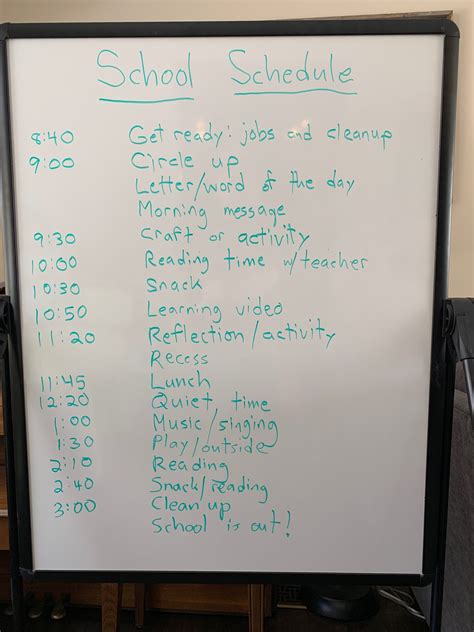 School Schedule
8:40 Get ready: jobs and cleanup
9:00 Circle up
Letter/word of the day
Morning message
9:30 Craft or activity
10:00 Reading time w/teacher
10:30 Snack
10:50 Learning video
11:20 Reflection/activity
Recess
11:45 Lunch
12:20 Quiet time
1:00 Music/singing
1:30 Play/outside
2:10 Reading
2:40 Snack/reading
3:00 Clean up
School is out!